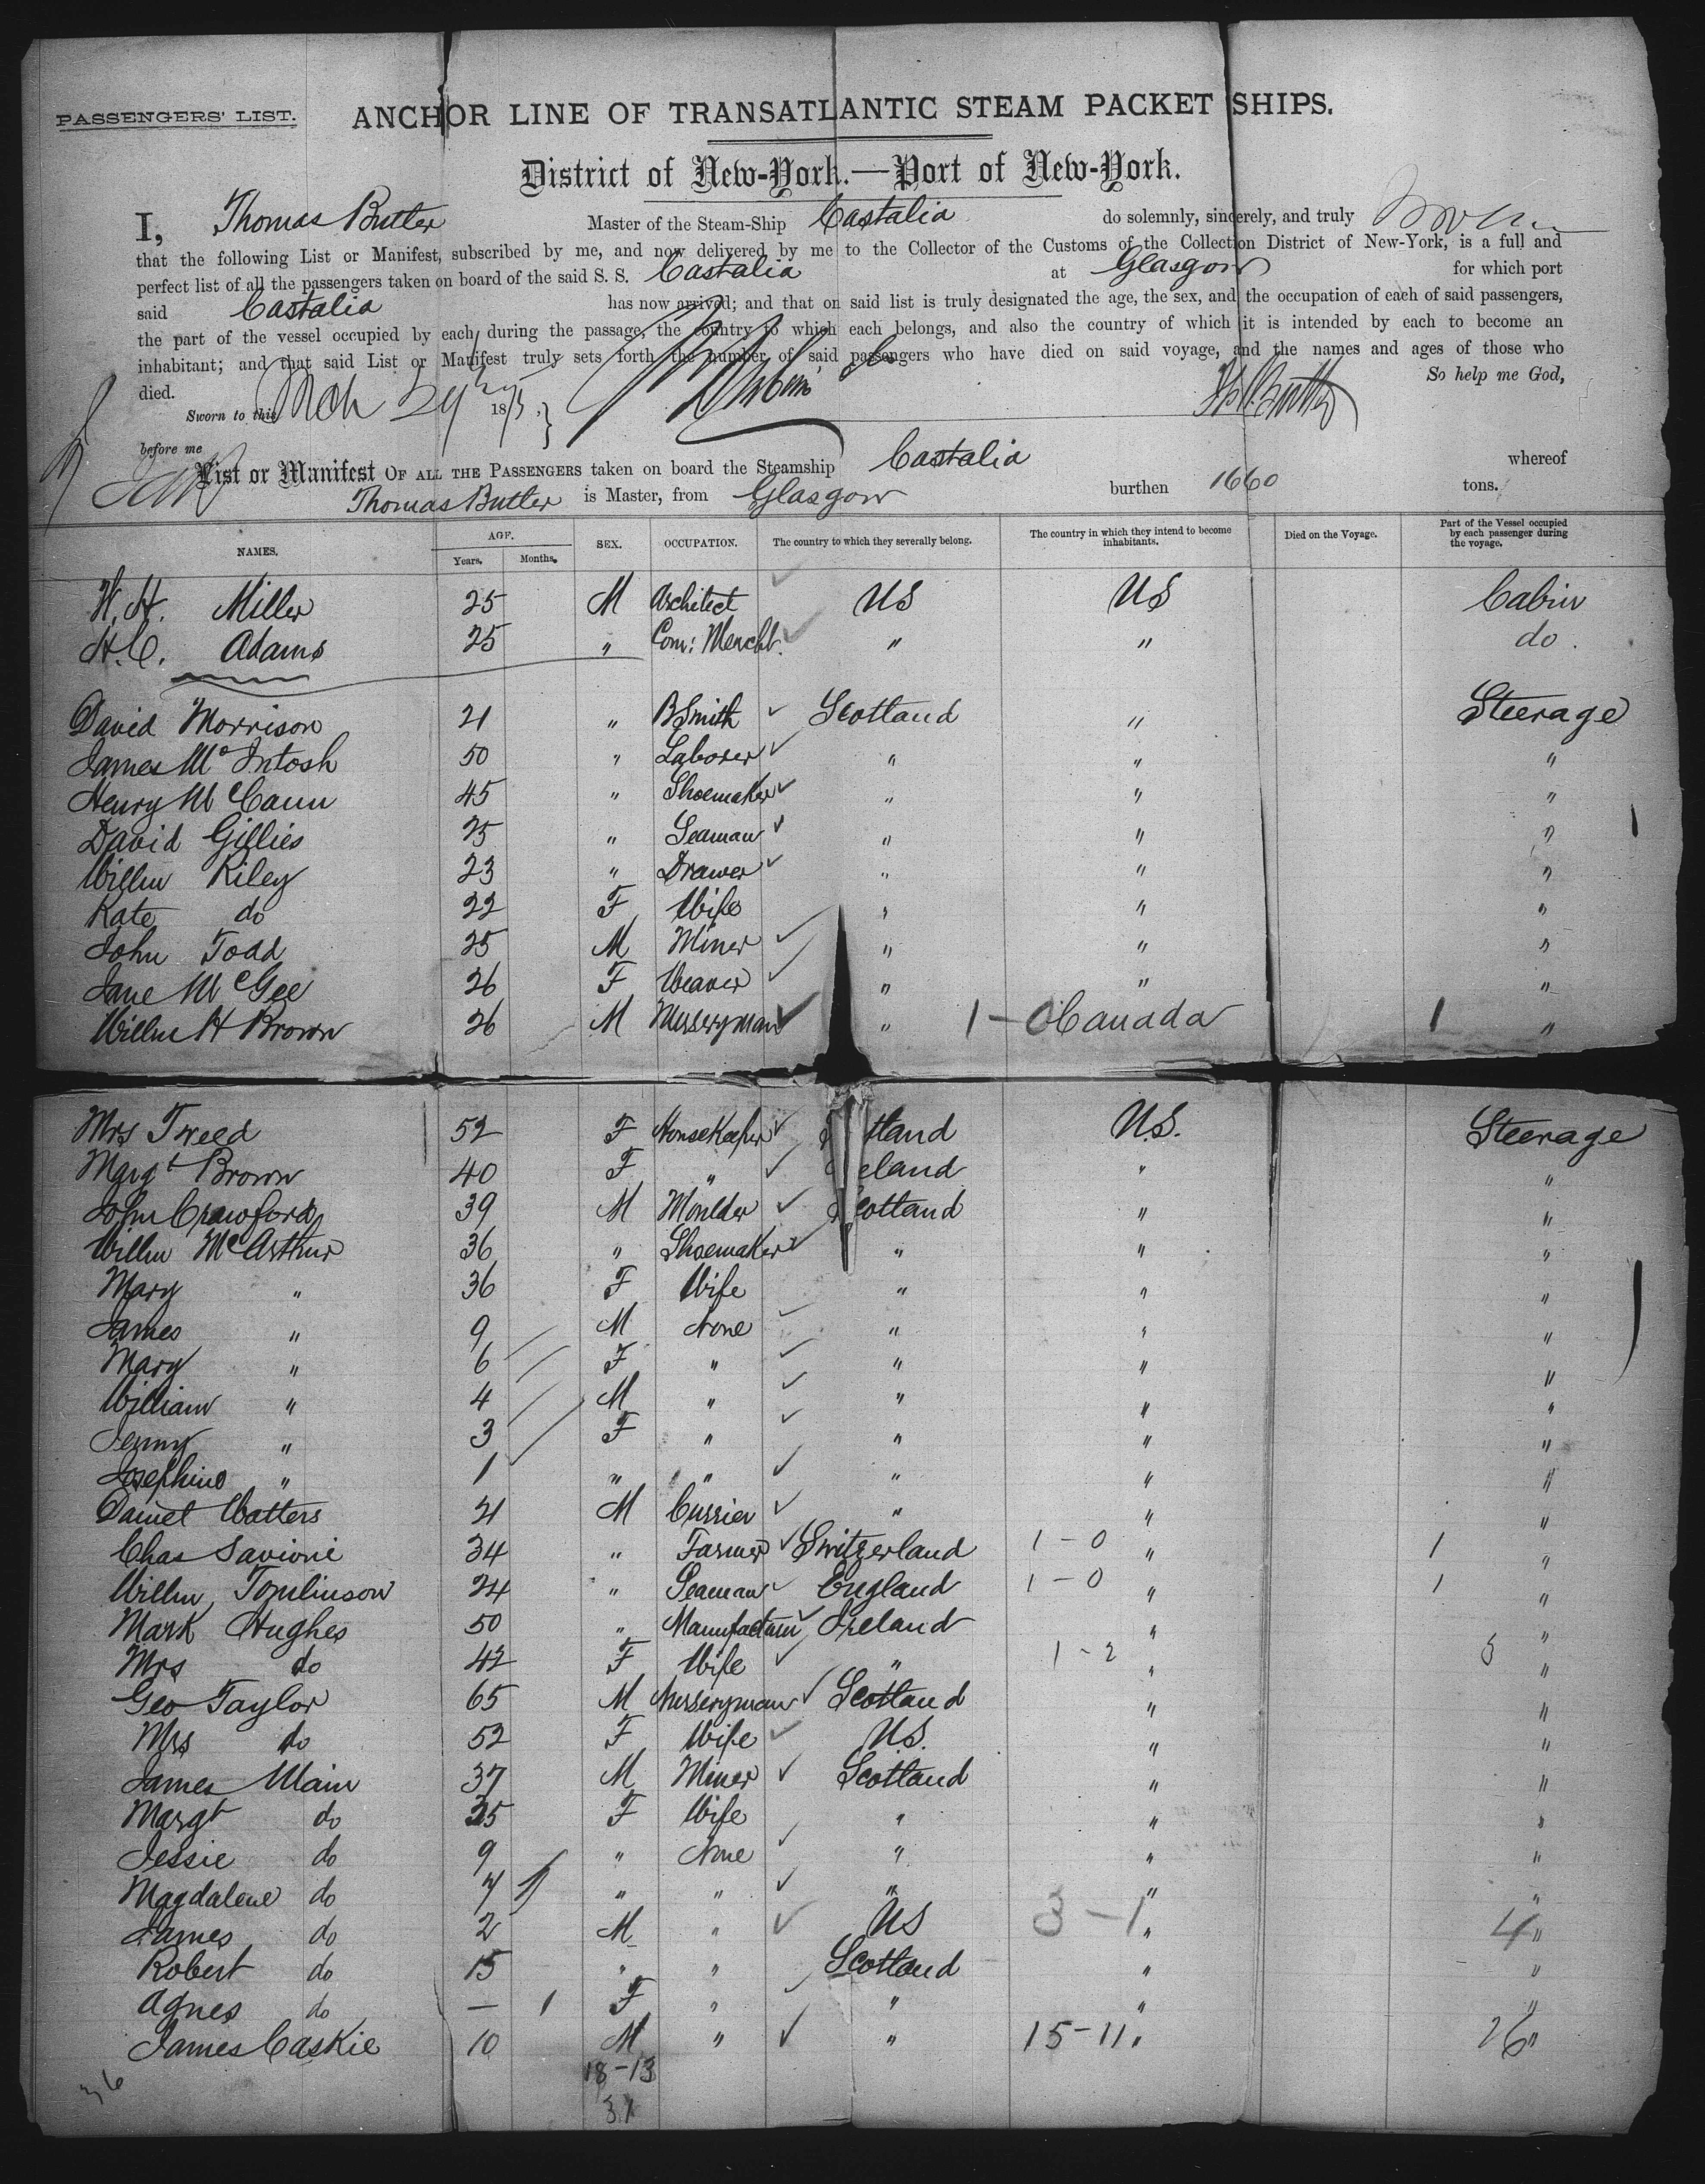 PASSENGERS' LIST. ANCHOR LINE OF TRANSATLANTIC STEAM PACKET SHIPS.
District of New-York.—Port of New-York.
I, Thomas Butler Master of the Steam-Ship Castalia do solemnly, sincerely, and truly
that the following List or Manifest, subscribed by me, and now delivered by me to the Collector of the Customs of the Collection District of New-York, is a full and
perfect list of all the passengers taken on board of the said S. S. Castalia at Glasgow for which port
said Castalia has now arrived; and that on said list is truly designated the age, the sex, and the occupation of each of said passengers,
the part of the vessel occupied by each during the passage, the country to which each belongs, and also the country of which it is intended by each to become an
inhabitant; and that said List or Manifest truly sets forth the number of said passengers who have died on said voyage, and the names and ages of those who
died. So help me God,
Sworn to this Mch 29 187
before me
List or Manifest OF ALL THE PASSENGERS taken on board the Steamship Castalia whereof
Thomas Butler is Master, from Glasgow burthen 1660 tons.
NAMES. AGE. Years. Months. SEX. OCCUPATION. The country to which they severally belong. The country in which they intend to become inhabitants. Died on the Voyage. Part of the Vessel occupied by each passenger during the voyage.
W. H. Miller 25 M Architect US US Cabin
H. C. Adams 25 " Com: Mercht. " " do.
David Morrison 21 " BSmith Scotland " Steerage
James McIntosh 50 " Laborer " " "
Henry McCann 45 " Shoemaker " " "
David Gillies 25 " Seaman " " "
Willm Riley 23 " Drawer " " "
Kate do 22 F Wife " " "
John Todd 25 M Miner " " "
Jane McGee 26 F Weaver " " "
Willm H Brown 26 M Nurseryman " 1-0 Canada 1 "
Mrs Tweed 52 F HouseKeeper tland U.S. Steerage
Margt Brown 40 F " eland " "
John Crawford 39 M Moulder Scotland " "
Willm McArthur 36 " Shoemaker " " "
Mary " 36 F Wife " " "
James " 9 M None " " "
Mary " 6 F " " " "
William " 4 M " " " "
Jenny " 3 F " " " "
Josephine " 1 " " " " "
Daniel Watters 21 M Currier " " "
Chas Savioni 34 " Farmer Switzerland 1-0 " 1 "
Willm Tomlinson 24 " Seaman England 1-0 " 1 "
Mark Hughes 50 " Manufacturer Ireland " "
Mrs do 42 F Wife " 1-2 " 3 "
Geo Taylor 65 M Nurseryman Scotland " "
Mrs do 52 F Wife US. " "
James Main 37 M Miner Scotland " "
Margt do 35 F Wife " " "
Jessie do 9 " None " " "
Magdalene do 7 " " " " "
James do 2 M " US 3-1 " 4 "
Robert do 15 " " Scotland " "
Agnes do — 1 F " " " "
James Caskie 10 M " " 15-11 " 26 "
18-13
31
36